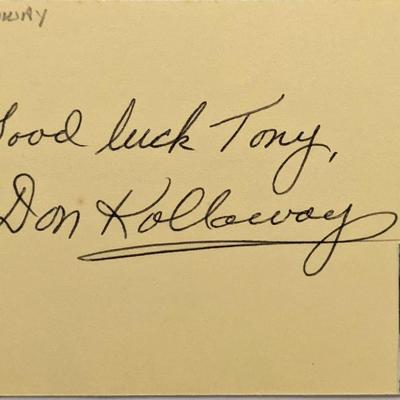 Good luck Tony,
Don Kolloway